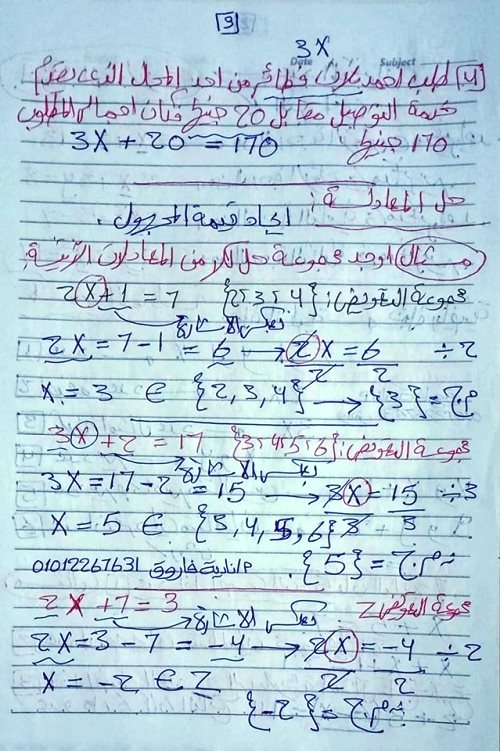 3
3X
Date Subject
[4] طلب احمد ثلاث فطائر من احد المحال الذى يقدم
خدمة التوصيل مقابل 20 جنيهًا فكان اجمالى المطلوب
170 جنيهًا 3X + 20 = 170
حل المعادلة:
إيجاد قيمة المجهول.
مثال اوجد مجموعة حل كل من المعادلات الآتية
2X+1 = 7 {2،3،4} مجموعة التعويض:
نعكس الاشارة
2X = 7-1 = 6 → 2X/2 = 6/2 ÷2
X = 3 ∈ {2,3,4} → {3} = م.ح
3X+2 = 17 {3،4،5،6} مجموعة التعويض:
نعكس الاشارة
3X = 17-2 = 15 → 3X/3 = 15/3 ÷3
X = 5 ∈ {3,4,5,6}
م.ح = {5}. م/نادية فاروق 01012267631
2X+7 = 3 مجموعة التعويض Z
نعكس الاشارة
2X = 3-7 = -4 → 2X/2 = -4/2 ÷2
X = -2 ∈ Z
م.ح = {-2}